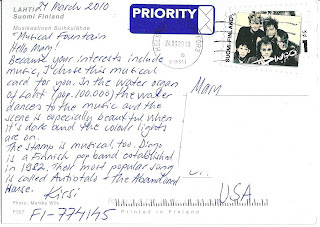 LAHTI 24 March 2010
Suomi Finland
Musikaalinen Suihkulähde
"Musical Fountain
Hello Mary!
Because your interests include
music, I chose this musical
card for you. In the water organ
of Lahti (pop. 100.000) the water
dances to the music and the
scene is especially beautiful when
it's dark and the colour lights
are on.
The stamp is musical, too. Dingo
is a Finnish pop band established
in 1982. Their most popular song
is called Autiotalo = the Abandoned
House.
Kirsi
Photo: Marika
FI-774145
Printed in Finland
PRIORITY
SUOMI FINLAND
DINGO
Mary
USA